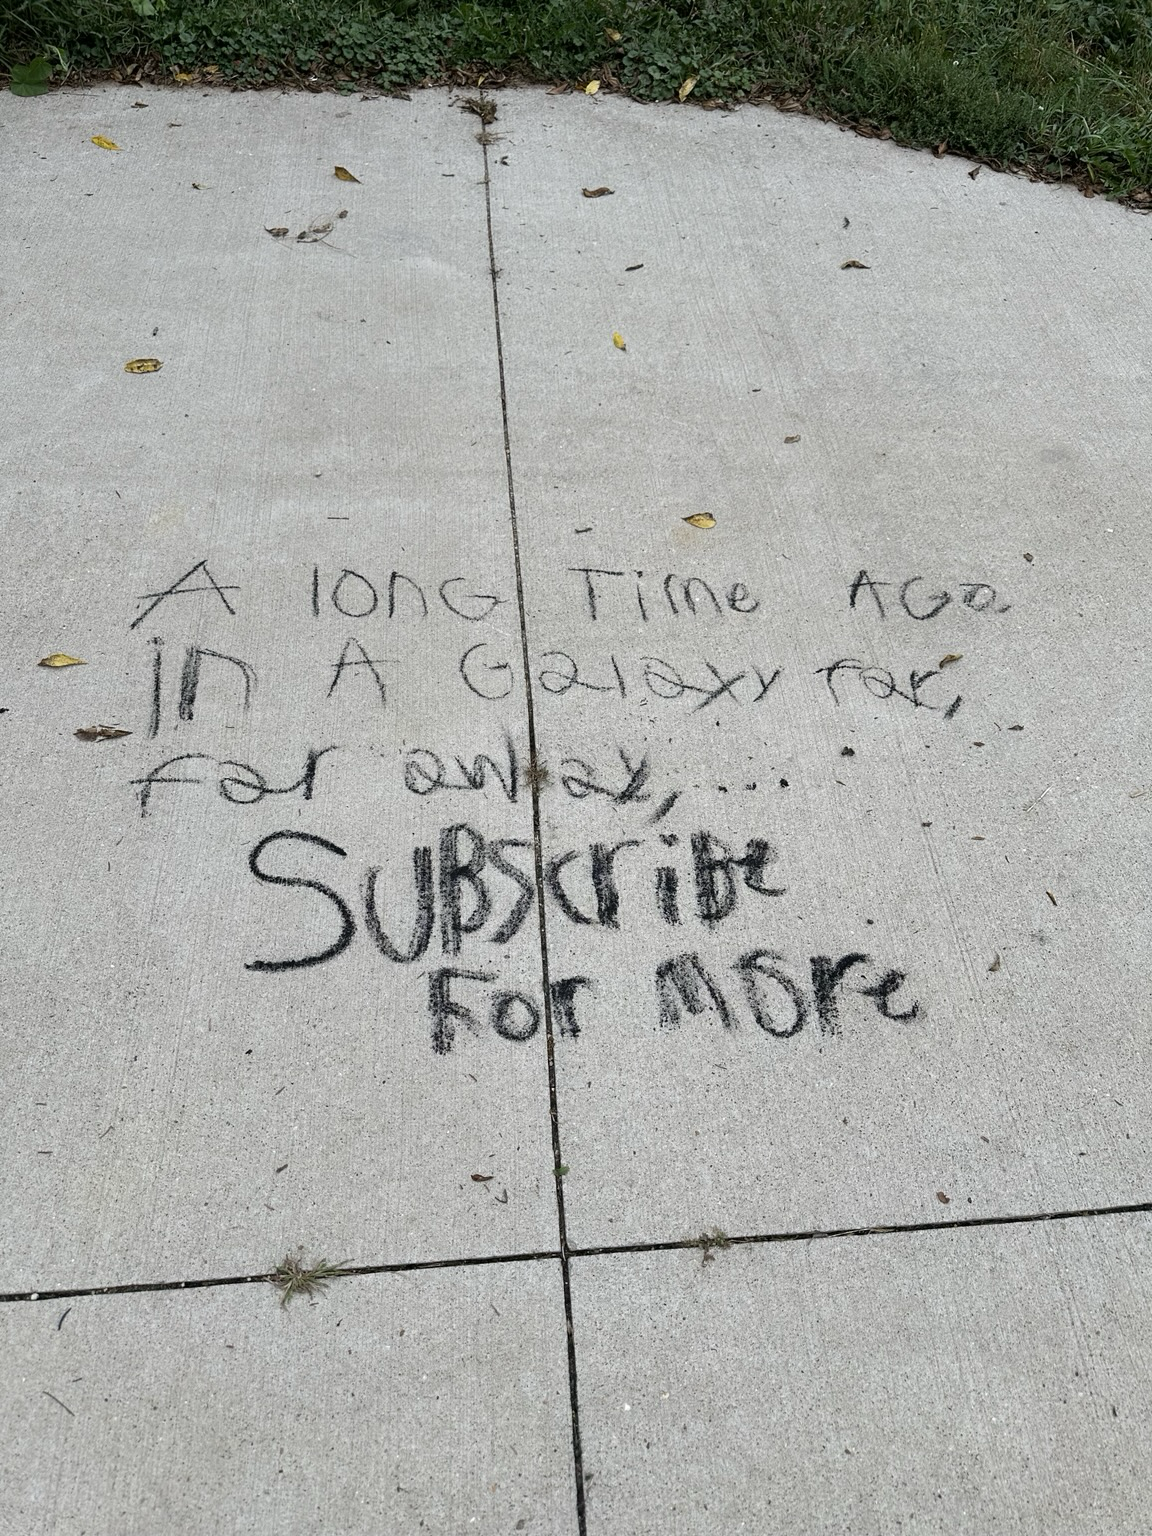 A lonG Time AGo
in A Galaxy far,
far away,....
SUBScriBe
For More